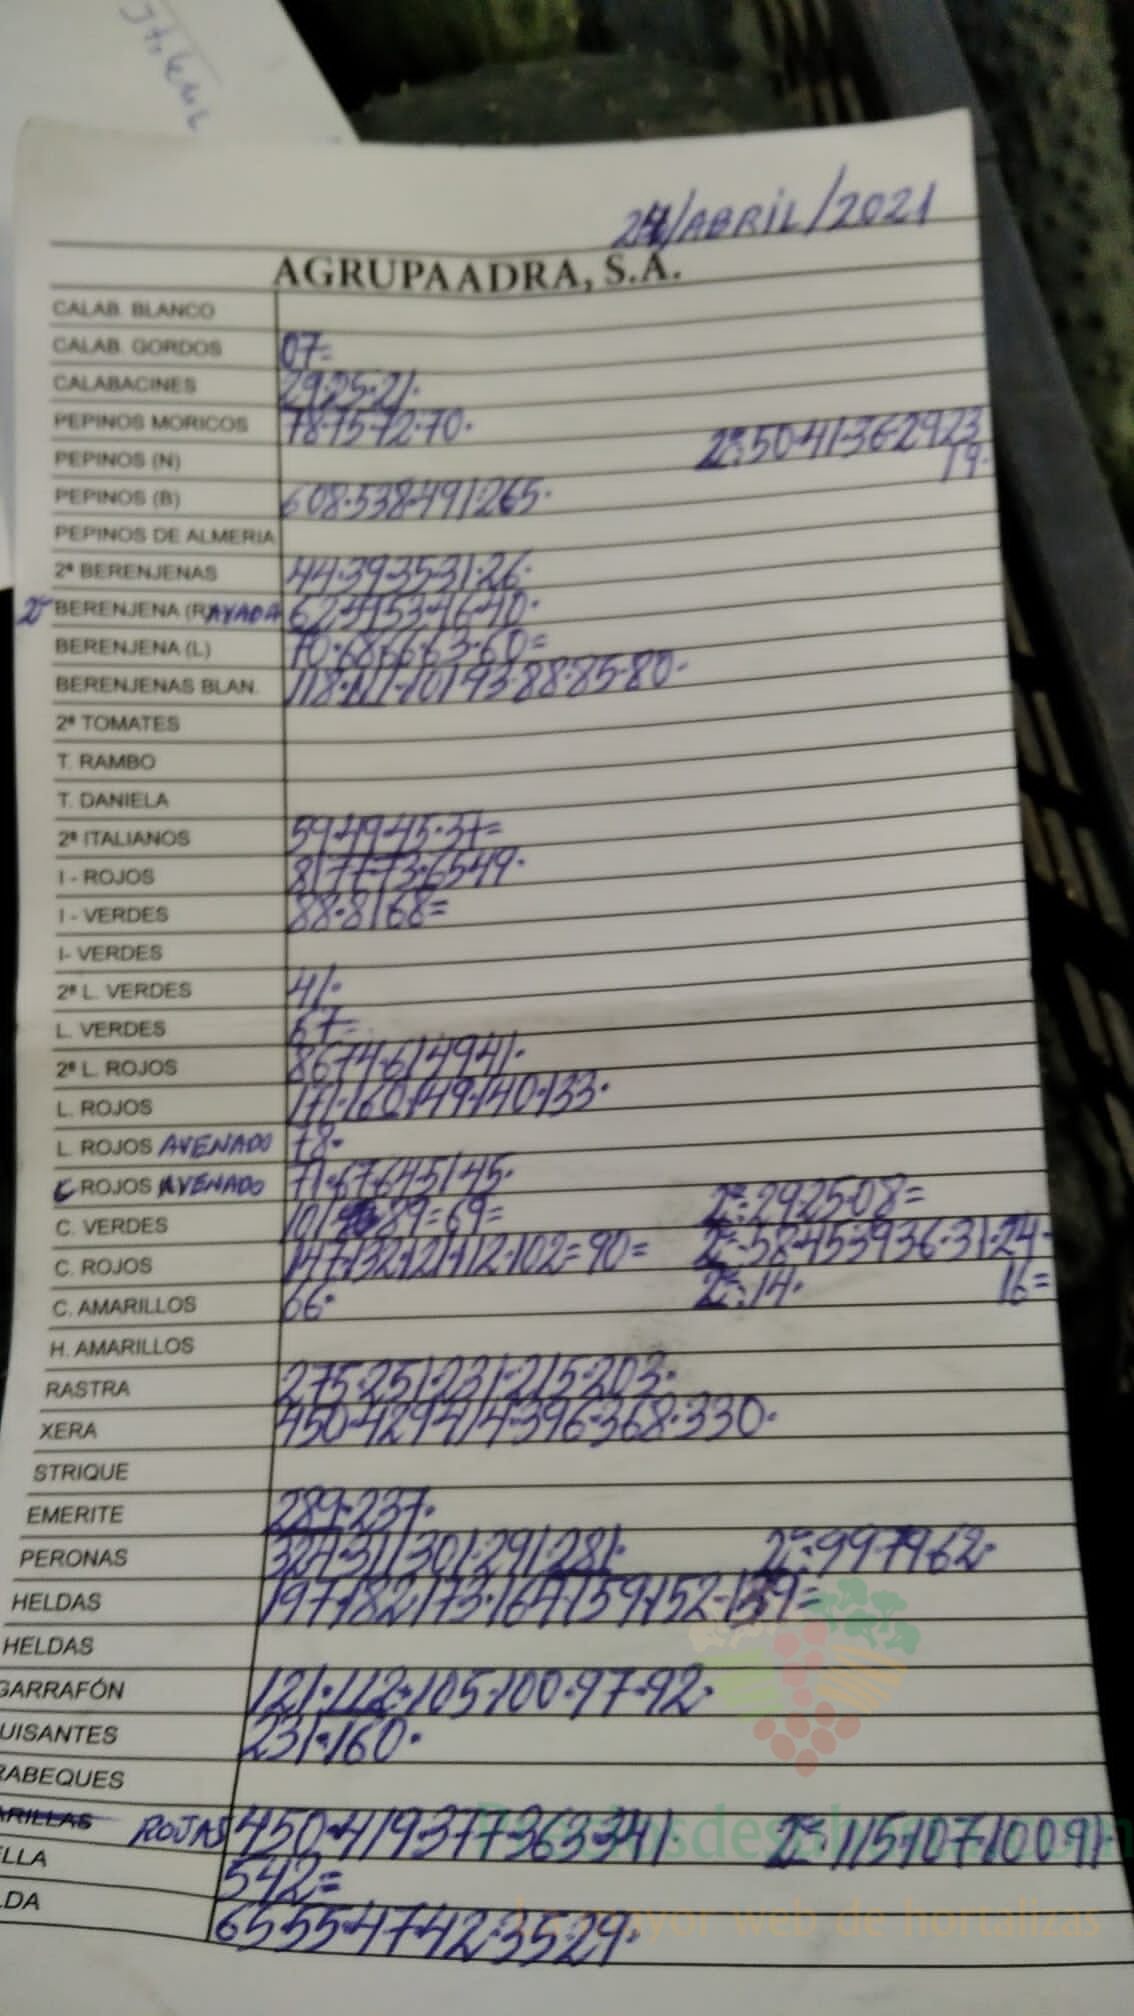 24/ABRIL/2021
AGRUPAADRA, S.A.
CALAB. BLANCO
CALAB. GORDOS 07=
CALABACINES 29·25·21·
PEPINOS MORICOS 78·75·72·70·
PEPINOS (N) 2ª:50·41·36·29·23
19·
PEPINOS (B) 608·538·491·265·
PEPINOS DE ALMERIA
2ª BERENJENAS 44·39·35·31·26·
2ª BERENJENA (RAYADA 62·41·53·46·40·
BERENJENA (L) 70·68·66·63·60=
BERENJENAS BLAN. 118·111·101·93·88·85·80·
2ª TOMATES
T. RAMBO
T. DANIELA
2ª ITALIANOS 59·49·45·37=
I - ROJOS 81·77·73·65·49·
I - VERDES 88·81·68=
I- VERDES
2ª L. VERDES 41·
L. VERDES 67=
2ª L. ROJOS 86·74·61·49·41·
L. ROJOS 171·160·149·140·133·
L ROJOS AVENADO 78·
C ROJOS AVENADO 71·67·64·51·45·
C. VERDES 101· 89=69= 2ª:29·25·08=
C. ROJOS 147·132·121·112·102=90= 2ª:58·45·39·36·31·24·
16=
C. AMARILLOS 66· 2ª:14·
H. AMARILLOS
RASTRA 275·251·231·215·203·
XERA 450·429·414·396·368·330·
STRIQUE
EMERITE 289·237·
PERONAS 327·311·301·291·281· 2ª:99·79·62·
HELDAS 197·182·173·164·159·152·139=
HELDAS
GARRAFÓN 121·112·105·100·97·92·
UISANTES 231·160·
RABEQUES
ARILLAS ROJAS 450·419·377·363·341· 2ª:115·107·100·91·
LLA 542=
LDA 65·55·47·42·35·29·
la mayor web de hortalizas